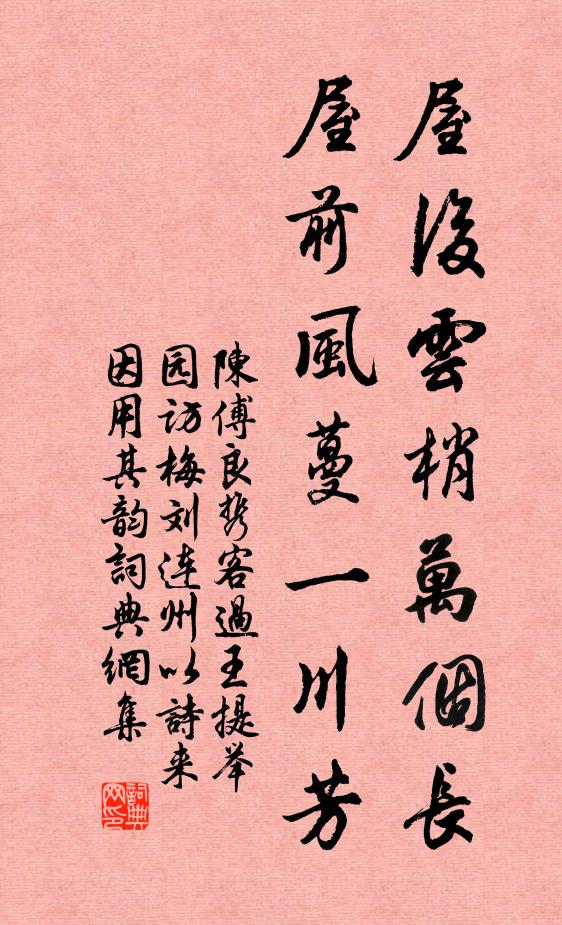 屋後雲梢萬個長
屋前風蔓一川芳
陳傅良携客過王提举
园访梅刘连州以詩来
因用其韵詞典網集
詞典网印